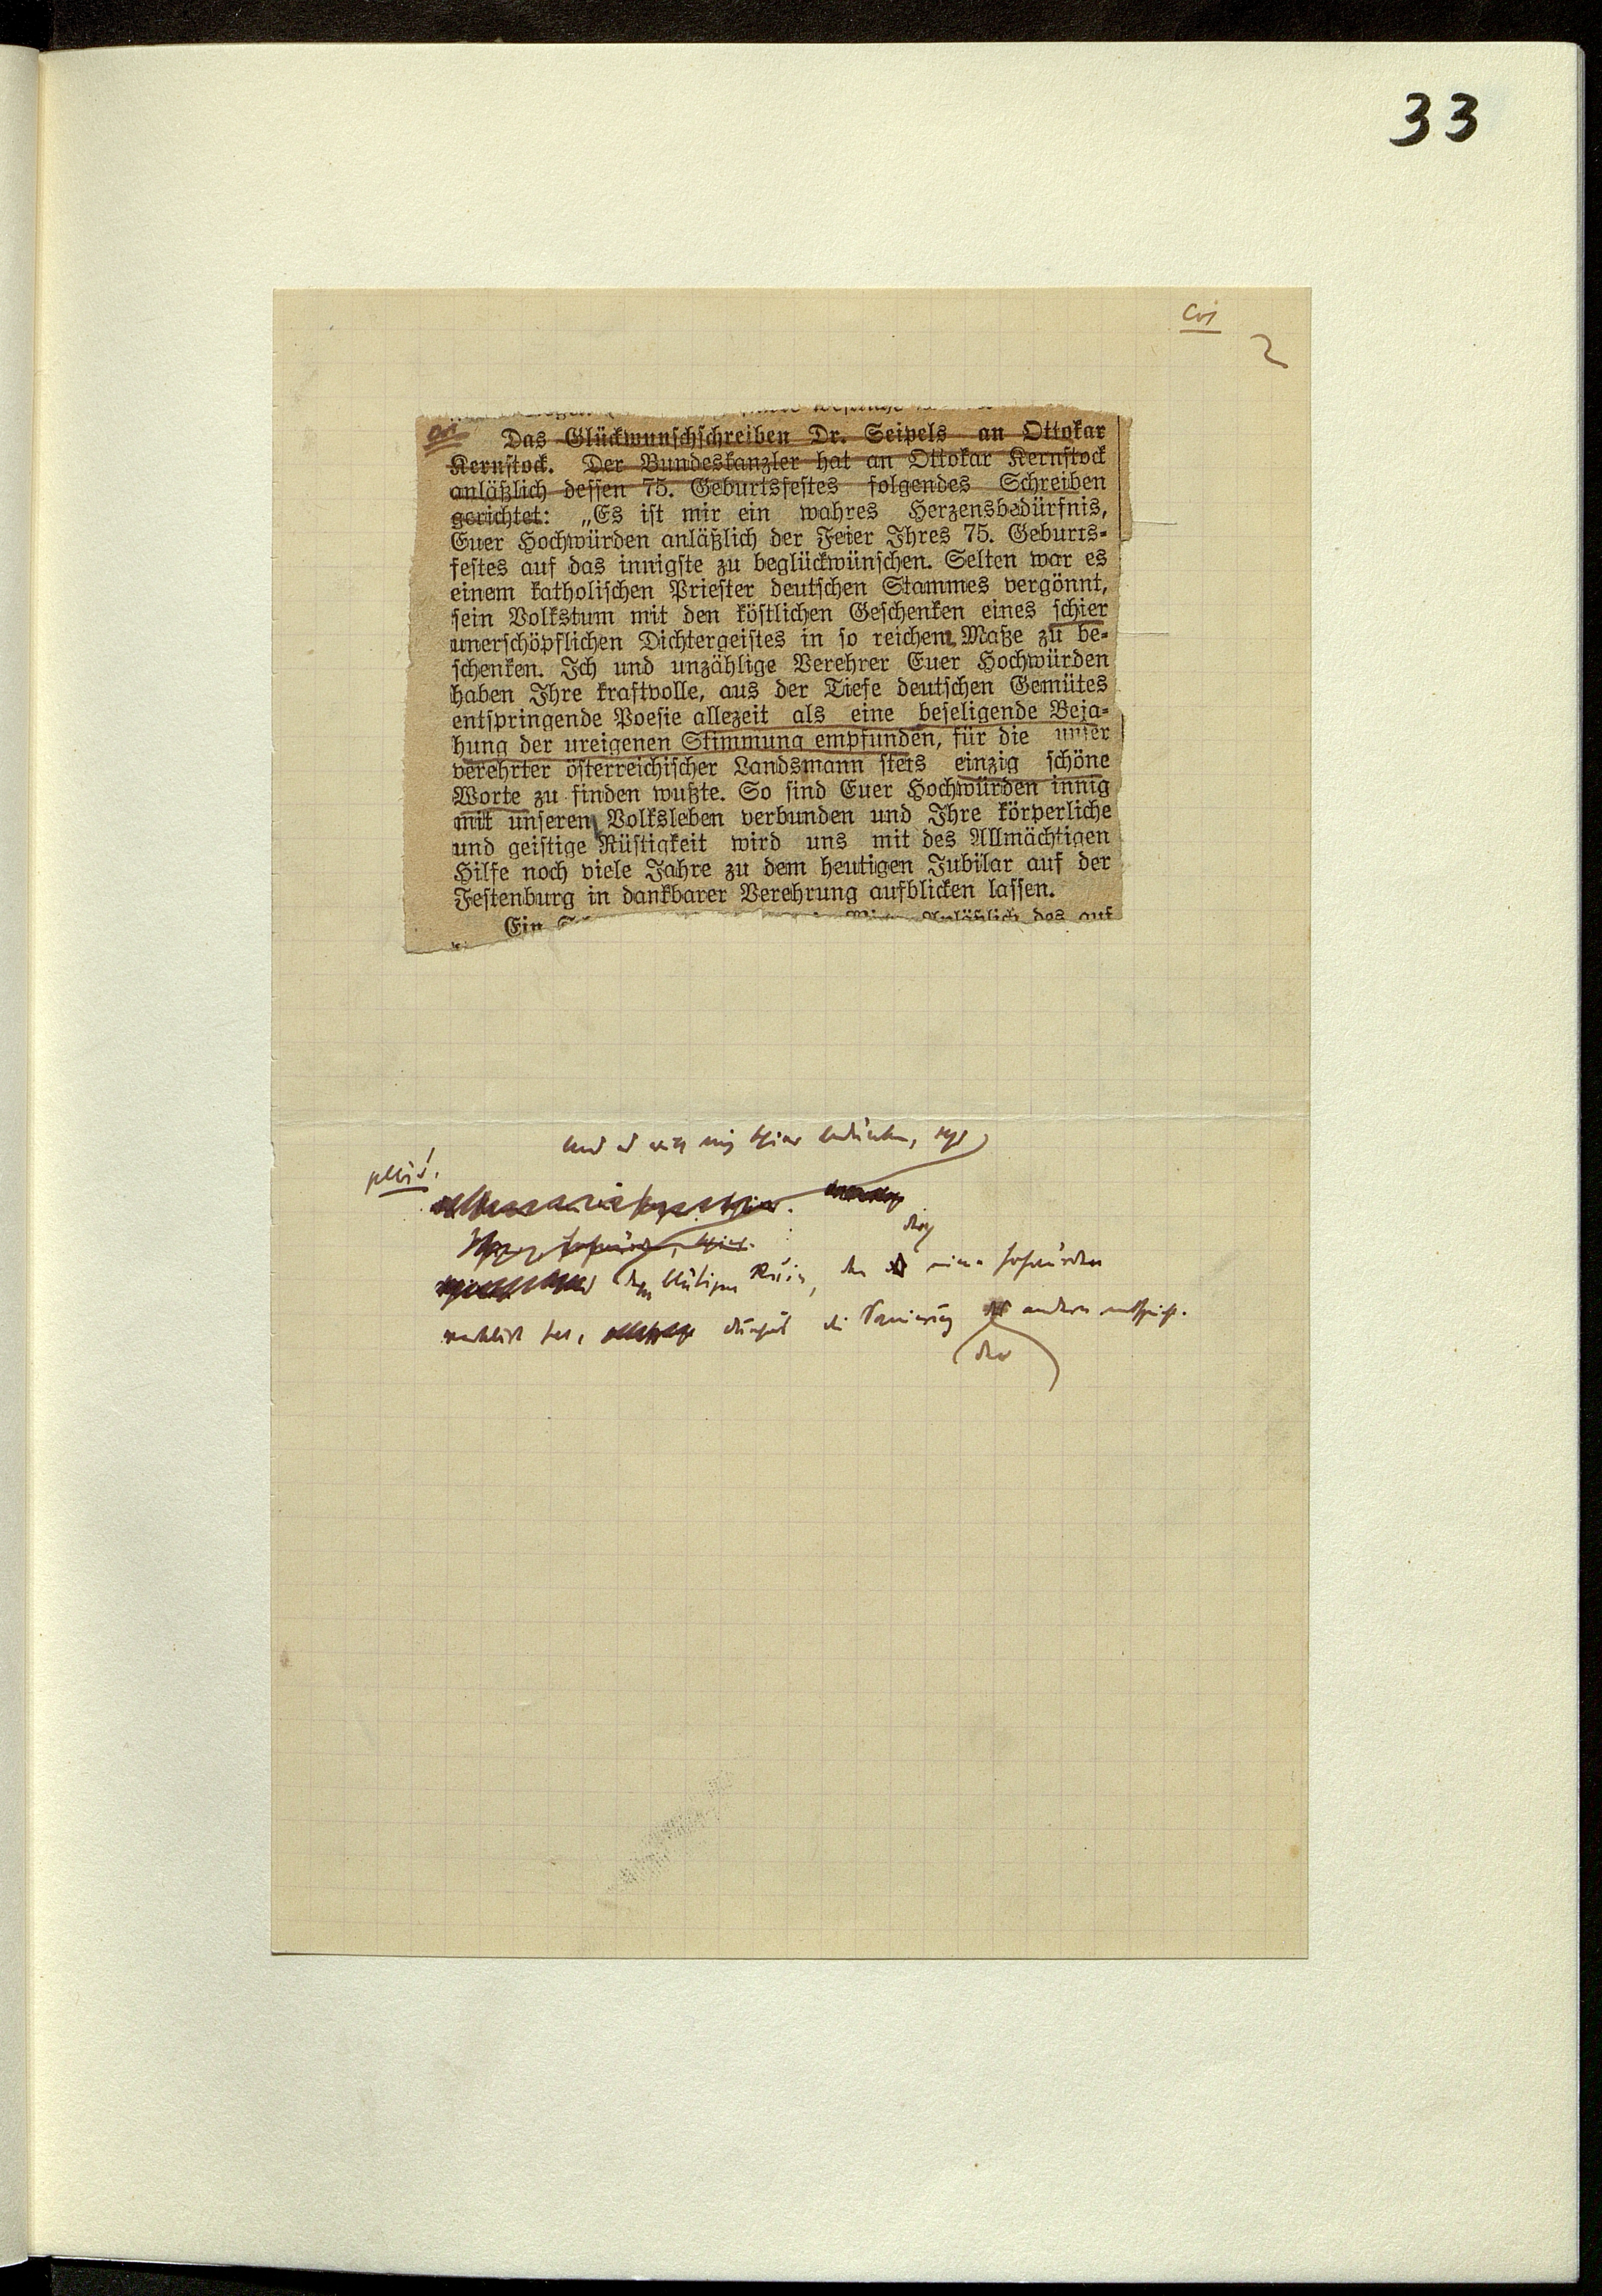 33
2
Das Glückwunschschreiben Dr. Seipels an Ottokar
Kernstock. Der Bundeskanzler hat an Ottokar Kernstock
anläßlich dessen 75. Geburtsfestes folgendes Schreiben
gerichtet: „Es ist mir ein wahres Herzensbedürfnis,
Euer Hochwürden anläßlich der Feier Ihres 75. Geburts-
festes auf das innigste zu beglückwünschen. Selten war es
einem katholischen Priester deutschen Stammes vergönnt,
sein Volkstum mit den köstlichen Geschenken eines schier
unerschöpflichen Dichtergeistes in so reichem Maße zu be-
schenken. Ich und unzählige Verehrer Euer Hochwürden
haben Ihre kraftvolle, aus der Tiefe deutschen Gemütes
entspringende Poesie allezeit als eine beseligende Beja-
hung der ureigenen Stimmung empfunden, für die unser
verehrter österreichischer Landsmann stets einzig schöne
Worte zu finden wußte. So sind Euer Hochwürden innig
mit unseren Volksleben verbunden und Ihre körperliche
und geistige Rüstigkeit wird uns mit des Allmächtigen
Hilfe noch viele Jahre zu dem heutigen Jubilar auf der
Festenburg in dankbarer Verehrung aufblicken lassen.
Ein Anläßlich des auf
und es will mich schier bedünken,
blutigen Ruin, den eine Hochwürden
hat, die Sanierung der andern entspricht.